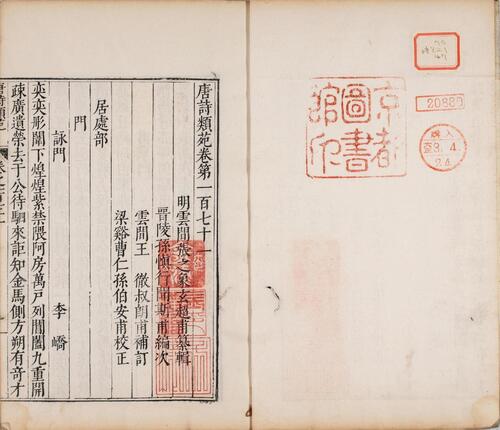 20889
京都
圖書
館印
購入
3.4.
24.
唐詩類苑卷第一百七十一
明雲間張之象玄超甫纂輯
晉陵孫慎行聞斯甫編次
雲間王徹叔朗甫補訂
梁谿曹仁孫伯安甫校正
居處部
門
詠門
李嶠
奕奕彤闈下煌煌紫禁隈阿房萬戸列閶闔九重開
疎廣遺榮去于公待駟來詎知金馬側方朔有奇才
唐詩類苑